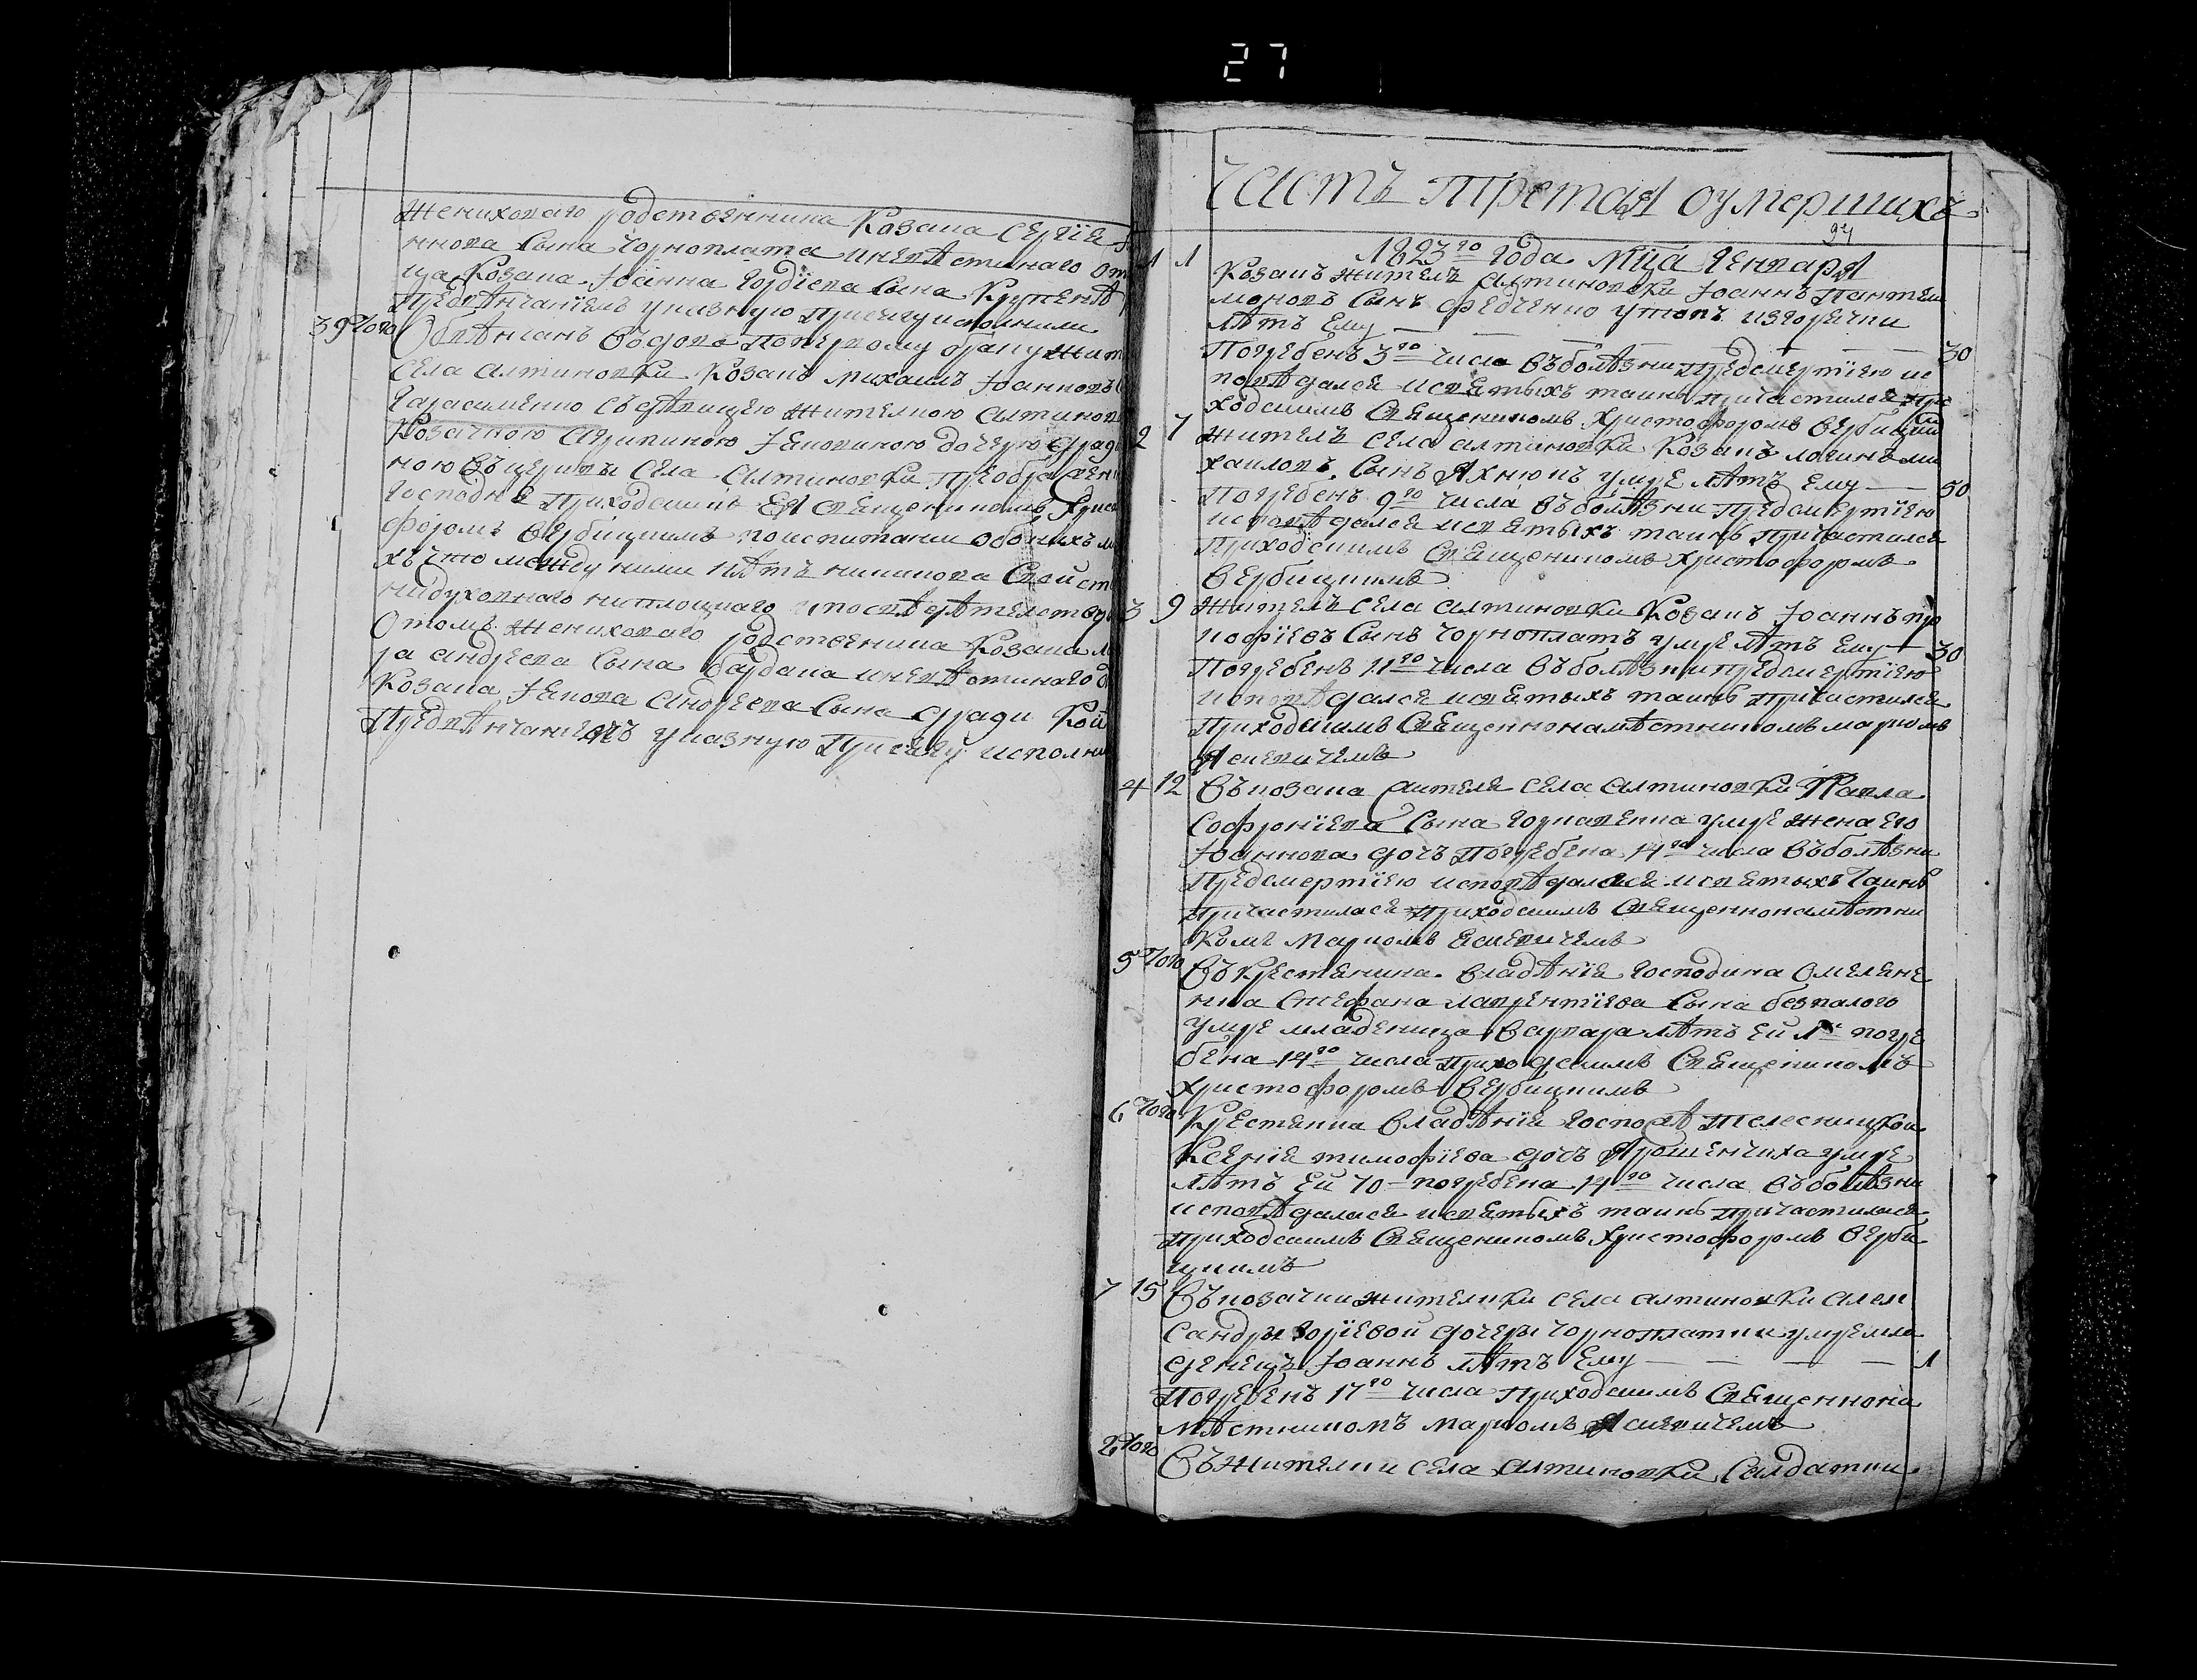 27
Женихового родственника Козака Сергїя
ннова сына Чорноплата и невѣстиного от
ца Козака Іоанна Гордїева сына Крупенѣ
предвѣнчанїемъ указную присягу исполнили
39 Того Обвѣнчанъ вдова по первому браку жит
села Алтиновки Козакъ Михаилъ Іоанновъ
Гарасименко съ дѣвицею жителкою Алтинов
Козачкою Агрипиною Якововою дочерю
ною въ церкви села Алтиновки Преображен
Господня приходскимъ Ея священикомъ Христо
форомъ Вербицкимъ по испитании обоихъ
хъ что между ними нѣтъ никакова свойст
ни духовнаго ни плоцкаго и по свѣдѣтелству
о томъ женихового родственика Козака
ра Андреева сына Бардака и невѣстиного
Козака Якова Андреева сына
предвѣнчаниемъ указную присягу исполни
Частъ третая оумершихъ
94
1823го года Мца Генваря
1 1 Козакъ жителъ Алтиновки Іоаннъ Пантели
моновъ сынъ Федченко утопъ
лѣтъ Ему — — — — — 30
Погребенъ 3го числа въ болѣзни предсмертїею ис
повѣдался и святыхъ таинъ причастился при
ходскимъ священикомъ Христофоромъ Вербицким
2 7 Жителъ села Алтиновки Козакъ Логинъ Ми
хаиловъ сынъ Яхнюкъ умре лѣтъ Ему — 50
Погребенъ 9го числа въ болѣзни предсмертїею
исповѣдался и святыхъ таинъ причастился
приходскимъ Священикомъ Христофоромъ
Вербицкимъ
3 9 Жителъ села Алтиновки Козакъ Іоаннъ Про
кофїевъ сынъ Чорноплатъ умре лѣтъ Ему — 30
Погребенъ 11го числа въ болѣзни предсмертїею
исповѣдался и святыхъ таинъ причастился
приходскимъ Священнонамѣстникомъ Маркомъ
Ясневичемъ
4 12 Въ козака жителя села Алтиновки Павла
Софронїева сына умре жена его
Іоаннова дочъ погребена 14го числа въ болѣзни
предсмертїею исповѣдалася и святыхъ Таинъ
причастилася приходскимъ Священнонамѣстни
комъ Маркомъ Ясневичемъ
5 Того Въ крестянина владѣнїя господина Омеляне
нка Стефана Лаврентїева сына Безпалого
умре младеница Варвара лѣтъ ей 1н погре
бена 14го числа приходскимъ Священикомъ
Христофоромъ Вербицкимъ
6 Того Крестянка владѣнїя госпожѣ Телесницкой
Ксенїя Тимофїева дочъ Ярошенчиха умре
лѣтъ Ей 70 — погребена 14го числа въ болѣзни
исповѣдалася и святыхъ таинъ причастилася
приходскимъ Священикомъ Христофоромъ Верби
цкимъ
7 15 Въ козачки жителки села Алтиновки Алек
сандры дочеры Чорноплатки умре мла
денецъ Іоаннъ лѣтъ Ему — — — — 1
Погребенъ 17го числа приходскимъ Священнона
мѣстникомъ Маркомъ Ясневичемъ
Того Въ жителки села Алтиновки Салдатки